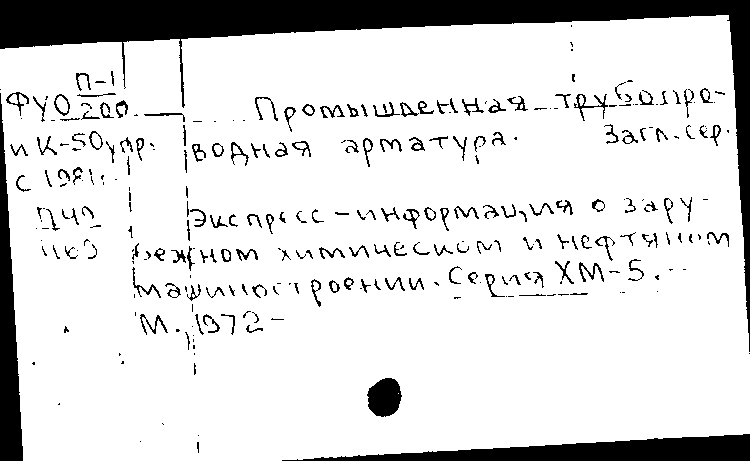 ФУО П-1/200
и К-50 упр.
с 1981г.
Промышленная трубопро-
водная арматура. Загл. сер.
Экспресс-информация о зару-
бежном химическом и нефтяном
машиностроении. Серия ХМ-5.
М., 1972-